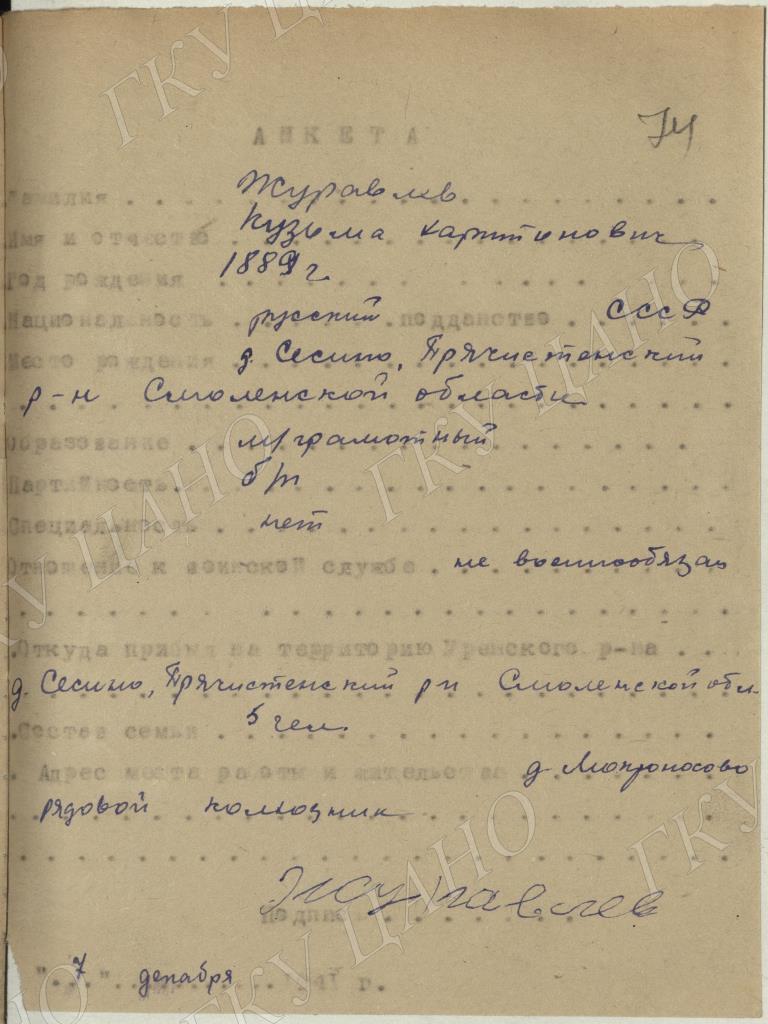 74
АНКЕТА
Фамилия . . . Журавлев
Имя и отчество . Кузьма Харитонович
Год рождения 1889 г.
Национальность . русский подданство . СССР
Место рождения . д. Сесино, Пречистенский
р-н Смоленской области
Образование . . м/грамотный
Партийность . . б/п
Специальность . . нет
Отношение к воинской службе . не военнообязан
Откуда прибыл на территорию Уренского р-на . .
д. Сесино, Пречистенский р-н Смоленской обл.
Состав семьи . . 5 чел.
Адрес места работы и жительства д. Мокроносово
рядовой колхозник
Журавлев
Подпись
"7" декабря 1941 г.
ГКУ ЦАНО